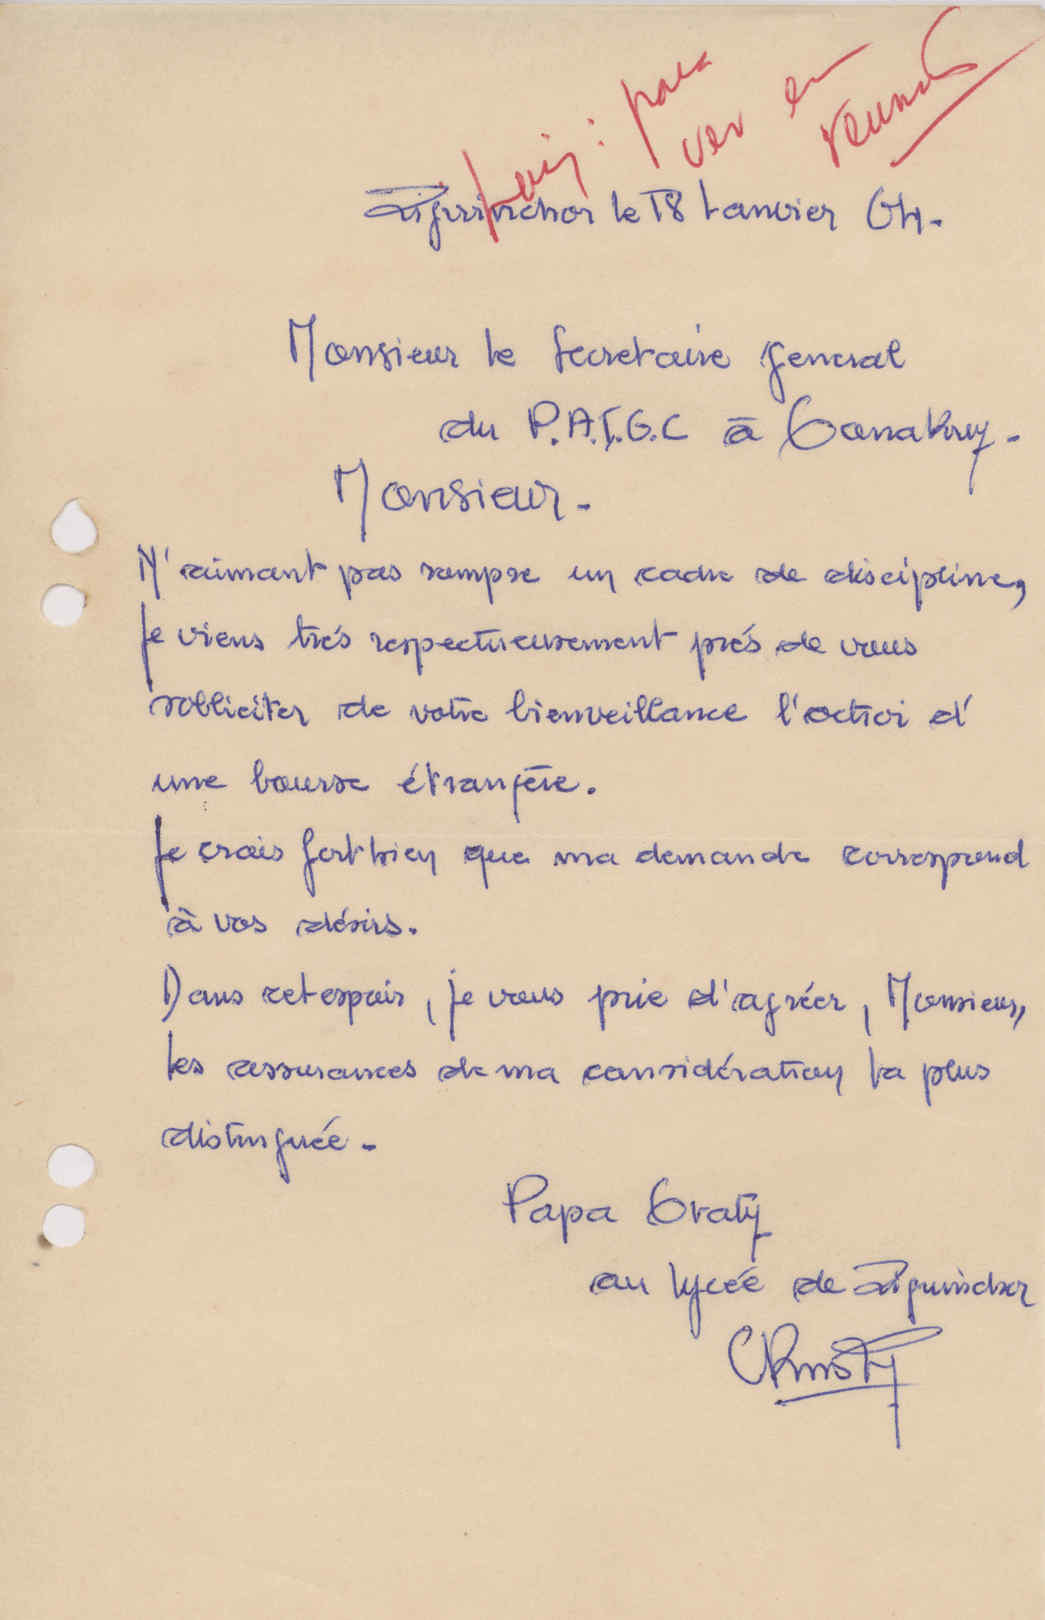 para
ver em
Ziguinchor le 18 Janvier 64.
Monsieur le Secretaire General
du P.A.I.G.C à Conakry.
Monsieur.
N'aimant pas rompre un cadre de discipline,
je viens trés respectueusement prés de vous
solliciter de votre bienveillance l'octroi d'
une bourse étrangère.
Je crois fort bien que ma demande correspond
à vos désirs.
Dans cet espoir, je vous prie d'agréer, Monsieur,
les assurances de ma considération la plus
distinguée.
Papa
au lycée de Ziguinchor